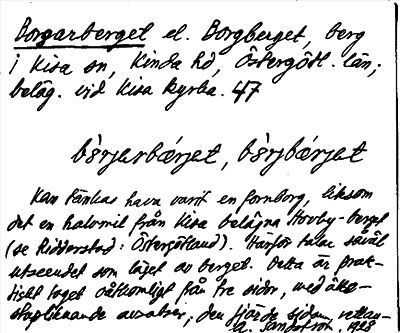 Borgarberget el. Borgberget, berg
i Kisa sn, Kinda hd, Östergötl. län;
beläg. vid Kisa kyrka. 47
bòrjarbærjet, bòrjbærjet
Kan tänkas hava varit en fornborg, liksom
det en halvmil från Kisa belägna Hovby-berget
(se Ridderstad: Östergötland). Härför talar såväl
utseendet som läget av berget. Detta är prak-
tiskt taget oåtkomligt från tre sidor, med
stupande avsatser; den fjärde sidan
A. Sandström. 1928